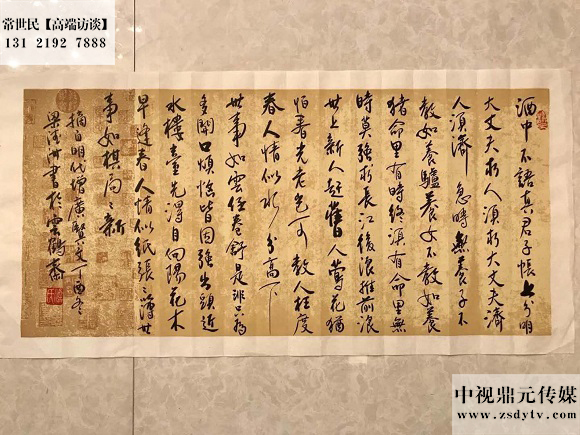 常世民【高端访谈】
131 2192 7888
酒中不語真君子帳上分明
大丈夫求人須求大丈夫濟
人須濟急時無養子不
教如養驢養女不教如養
猪命里有時終須有命里無
時莫強求長江後浪推前浪
世上新人趕舊人鶯花猶
怕春光老豈可教人枉度
春人情似水分高下
世事如雲任卷舒是非只為
多開口煩惱皆因強出頭近
水樓臺先得月向陽花木
早逢春人情似紙張〻薄世
事如棋局〻新
摘自明代增廣賢文丁酉冬
書於雲鶴齋
中视鼎元传媒
www.zsdytv.com